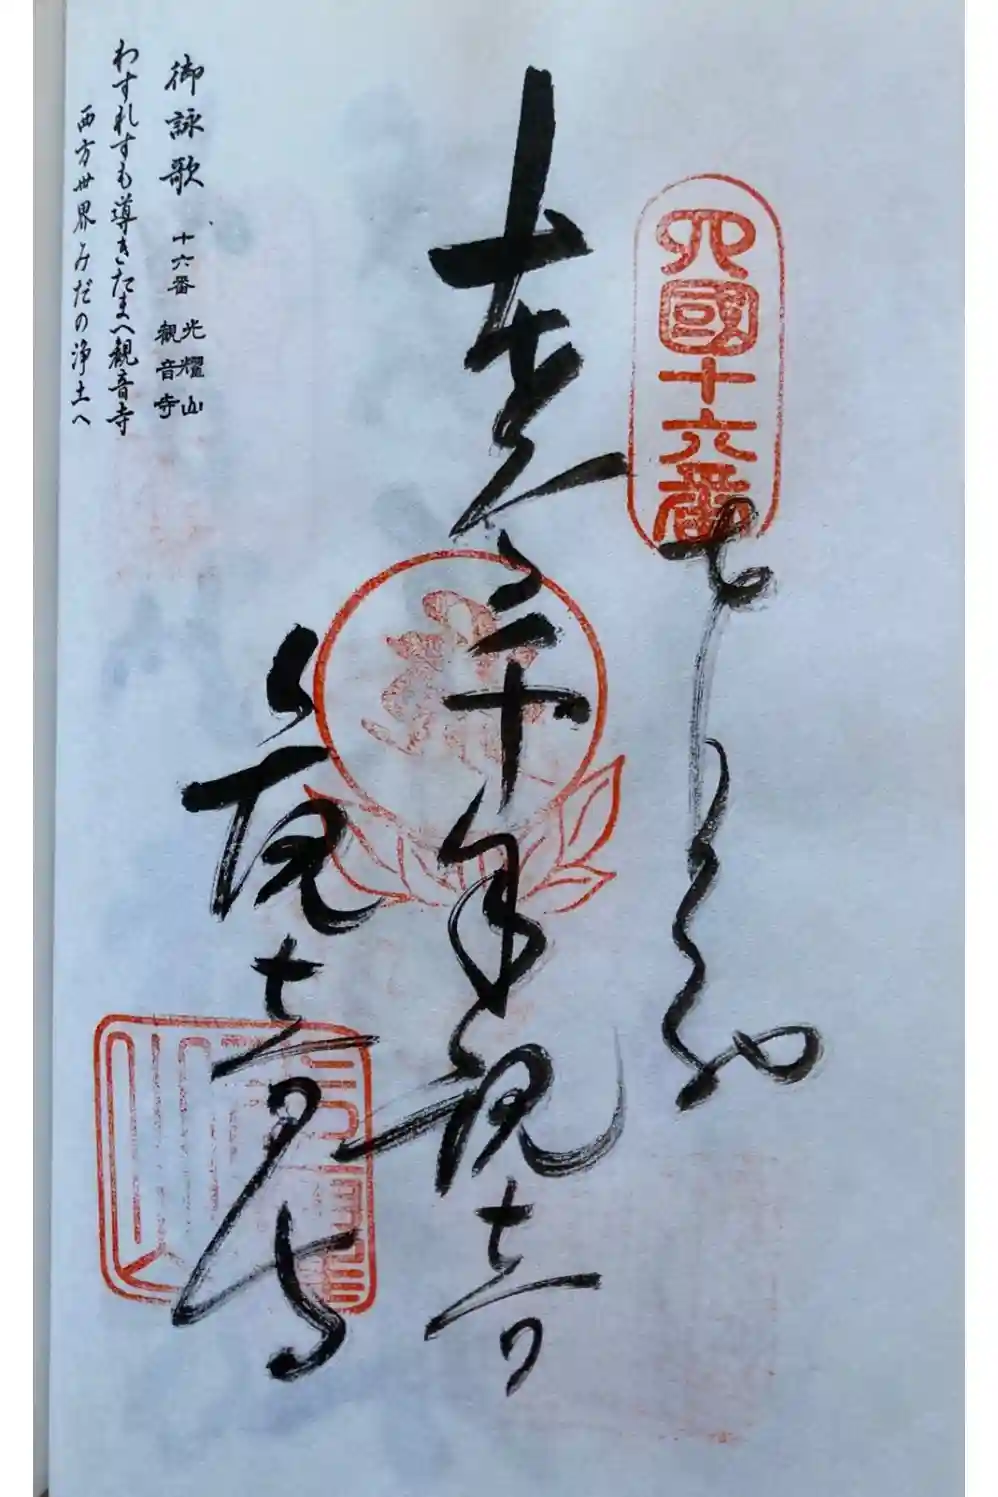 四國十六番
千手観音
観音寺
御詠歌 十六番 光耀山 観音寺
わすれすも導きたまへ観音寺
西方世界みだの浄土へ